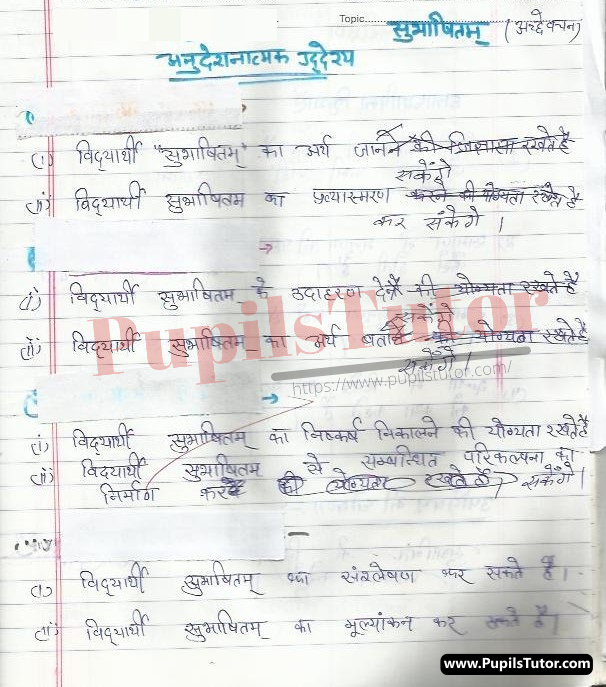 Topic.
सुभाषितम् (अर्द्धवचन)
अनुदेशनात्मक उद्देश्य
(i) विद्यार्थी "सुभाषितम्" का अर्थ जानने की जिज्ञासा रखते है
सकेंगे
(ii) विद्यार्थी सुभाषितम का प्रत्यास्मरण करने की योग्यता रखते है
कर सकेंगे ।
(i) विद्यार्थी सुभाषितम के उदाहरण देने की योग्यता रखते है
सकेंगे
(ii) विद्यार्थी सुभाषितम का अर्थ बताने की योग्यता रखते है
सकेंगे ।
PupilsTutor
https://www.pupilstutor.com/
(i) विद्यार्थी सुभाषितम् का निष्कर्ष निकालने की योग्यता रखते है
(ii) विद्यार्थी सुभाषितम् से सम्बन्धित परिकल्पना का
निर्माण कर की योग्यता रखते है । सकेंगे ।
(i) विद्यार्थी सुभाषितम् का संश्लेषण कर सकते है ।
(ii) विद्यार्थी सुभाषितम् का मूल्यांकन कर सकते है ।
www.PupilsTutor.com